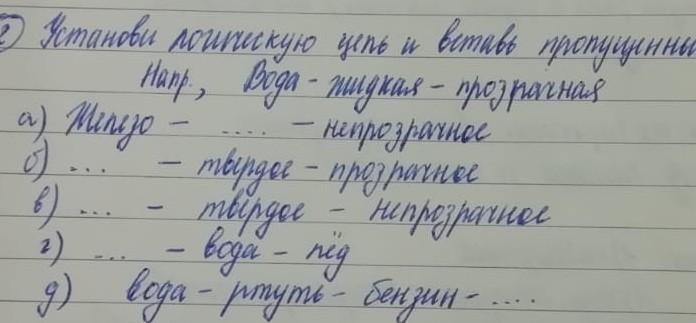 2) Установи логическую цепь и вставь пропущенны
Напр., Вода - жидкая - прозрачная
а) Железо - .... - непрозрачное
б) ... - твёрдое - прозрачное
в) ... - твёрдое - непрозрачное
г) ... - вода - лёд
д) вода - ртуть - бензин - ....